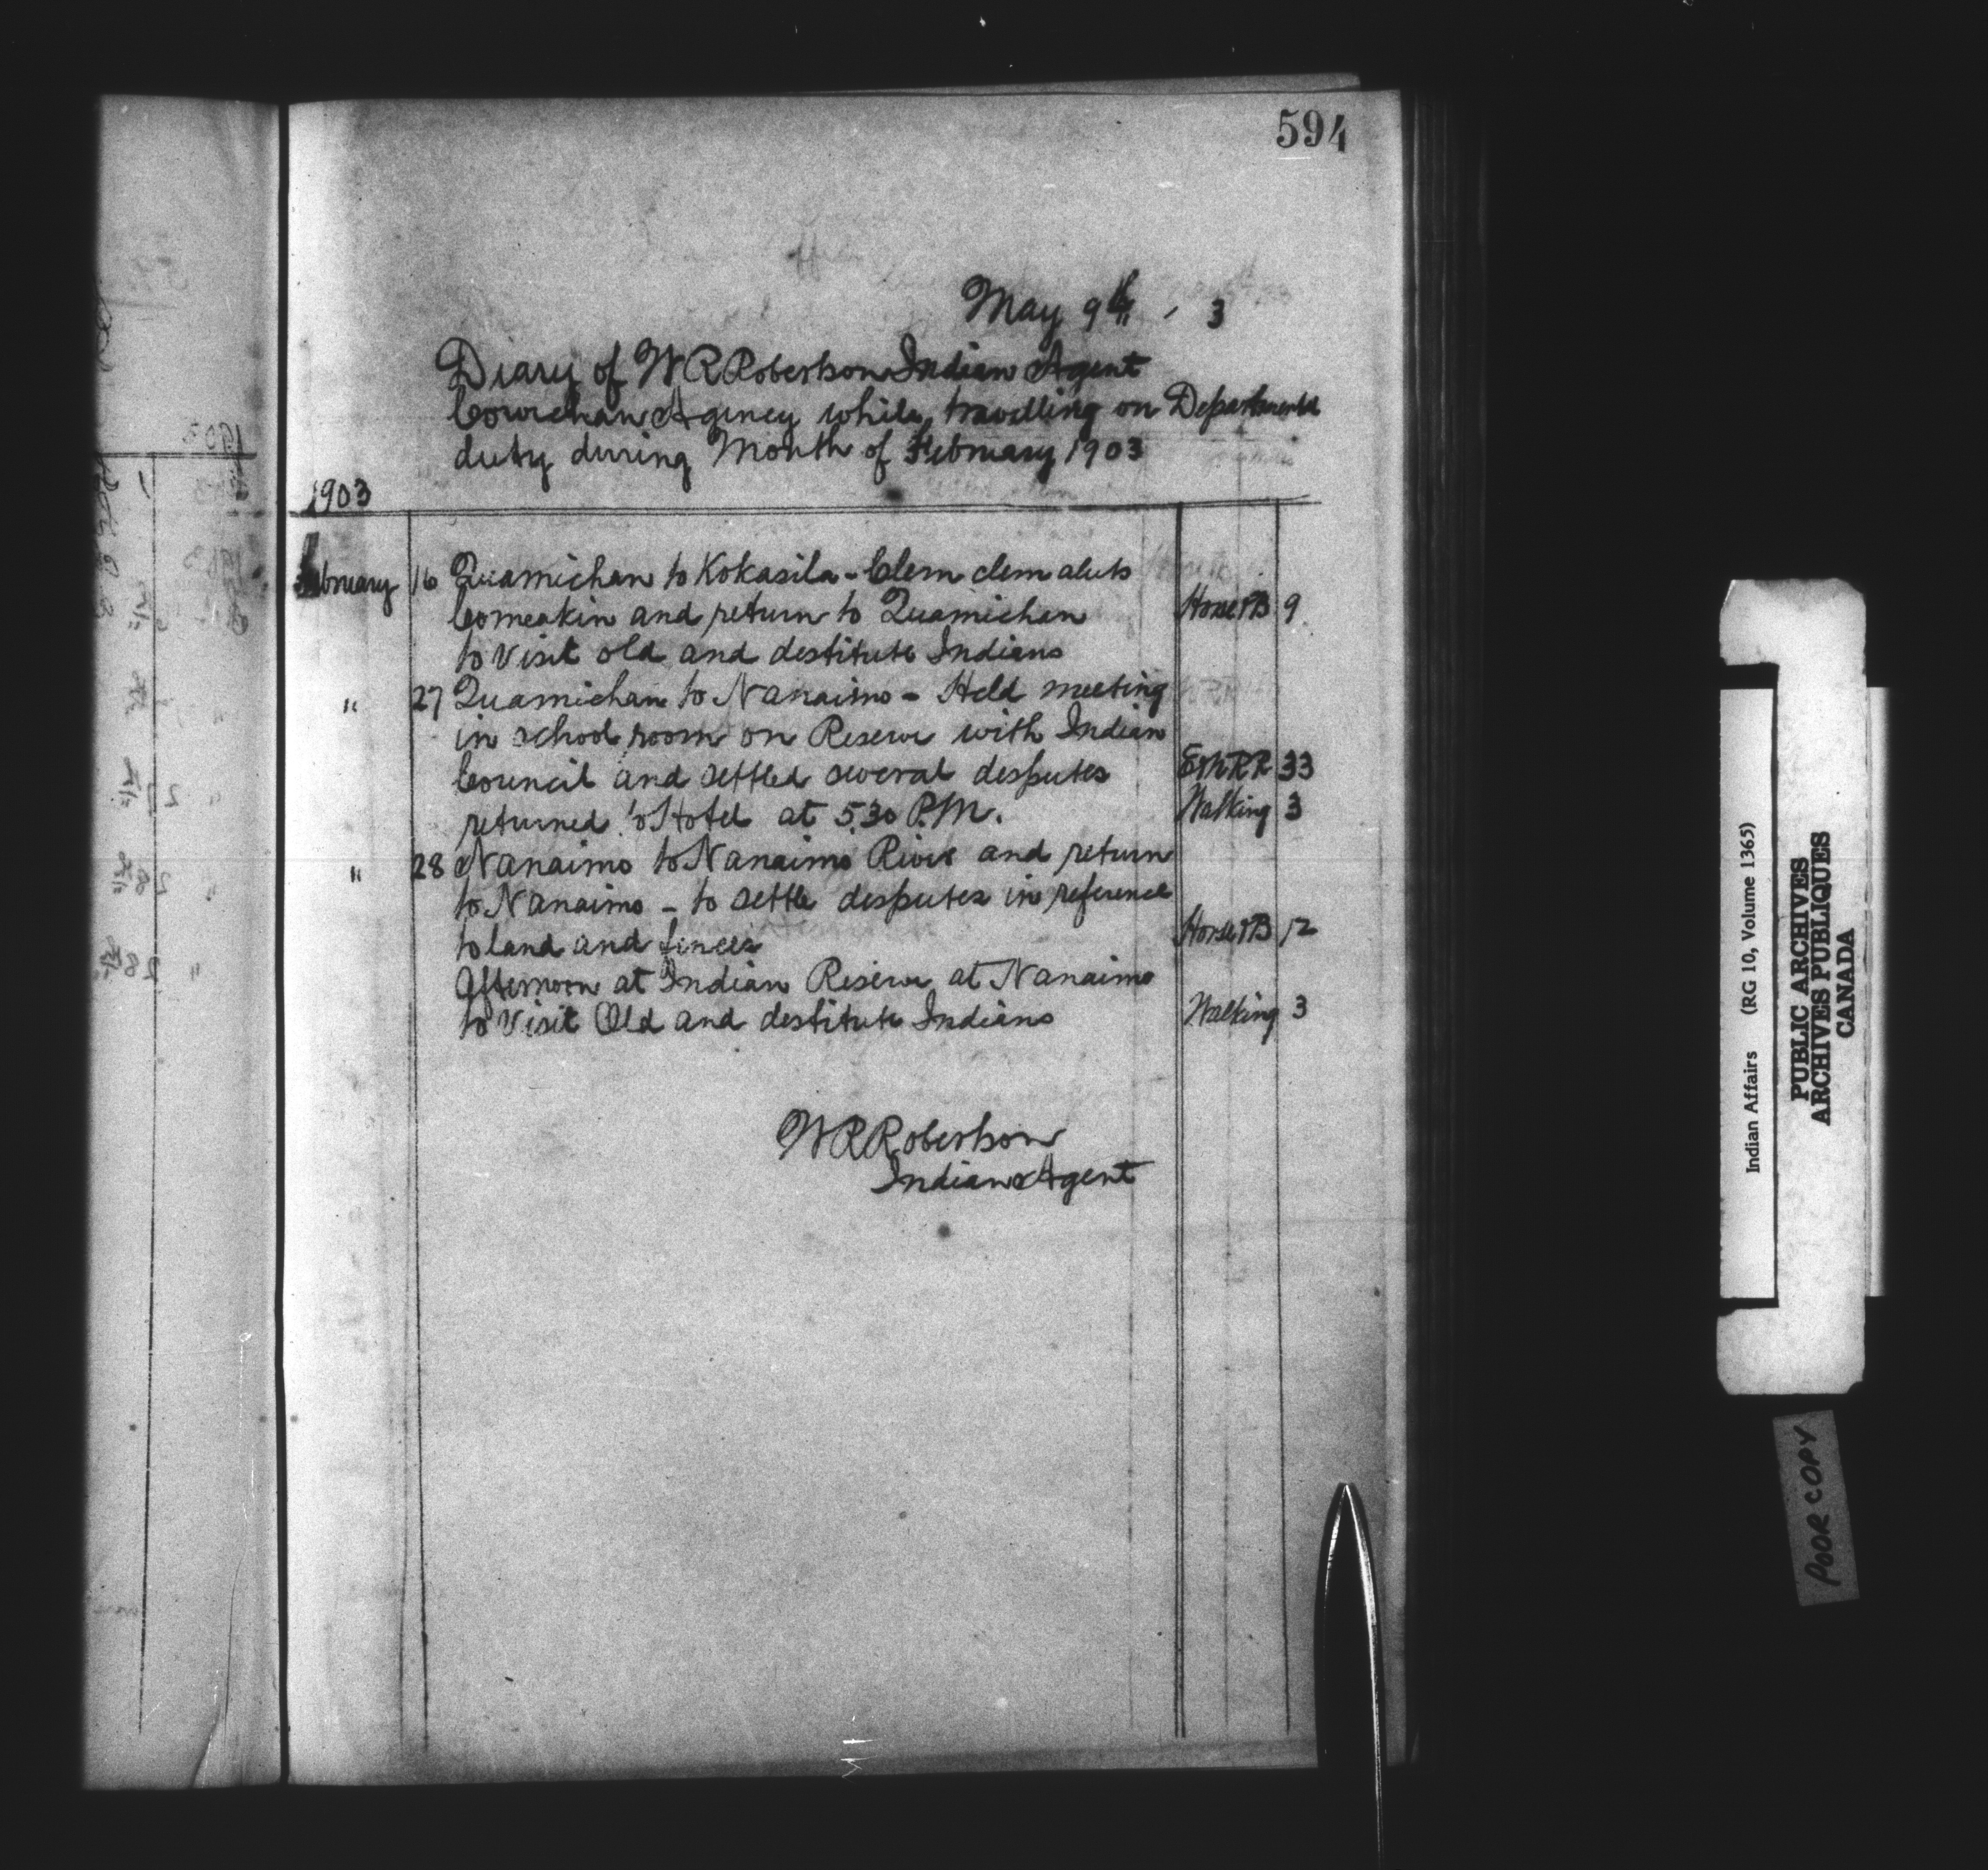 594
May 9th , 3
Diary of W R Robertson Indian Agent
Cowichan Agency while travelling on Departmental
duty during Month of February 1903
1903
February 16 Quamichan to Kokasila - Clem clem aluts
Comeakin and return to Quamichan Horse B 9
to Visit old and destitute Indians
" 27 Quamichan to Nanaimo - Held meeting
in school room on Reserve with Indian
Council and settled several desputes E&N RR 33
returned to Hotel at 5.30 P.M. Walking 3
" 28 Nanaimo to Nanaimo River and return
to Nanaimo - to settle desputes in reference
to land and fences Horse B 12
Afternoon at Indian Reserve at Nanaimo
to Visit Old and destitute Indians Walking 3
W R Robertson
Indian Agent
Indian Affairs (RG 10, Volume 1365)
PUBLIC ARCHIVES
ARCHIVES PUBLIQUES
CANADA
POOR COPY